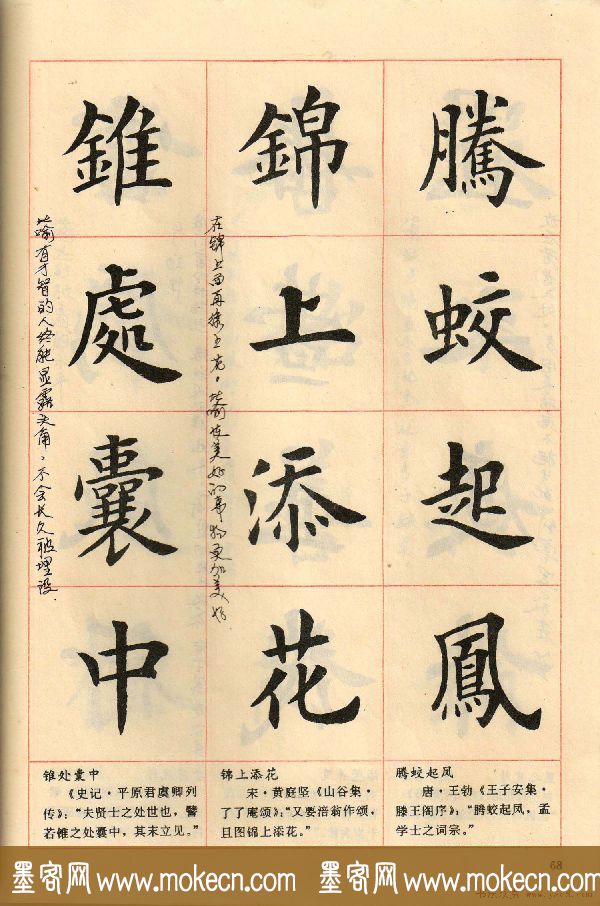 騰蛟起鳳
錦上添花
在锦上面再绣上花。比喻使美好的事物更加美好.
錐處囊中
比喻有才智的人终能显露头角，不会长久被埋没.
腾蛟起凤
唐·王勃《王子安集·
滕王阁序》：“腾蛟起凤，孟
学士之词宗。”
锦上添花
宋·黄庭坚《山谷集·
了了庵颂》：“又要涪翁作颂，
且图锦上添花。”
锥处囊中
《史记·平原君虞卿列
传》：“夫贤士之处世也，譬
若锥之处囊中，其末立见。”
68
墨客网 www.mokecn.com 墨客网 www.mokecn.com